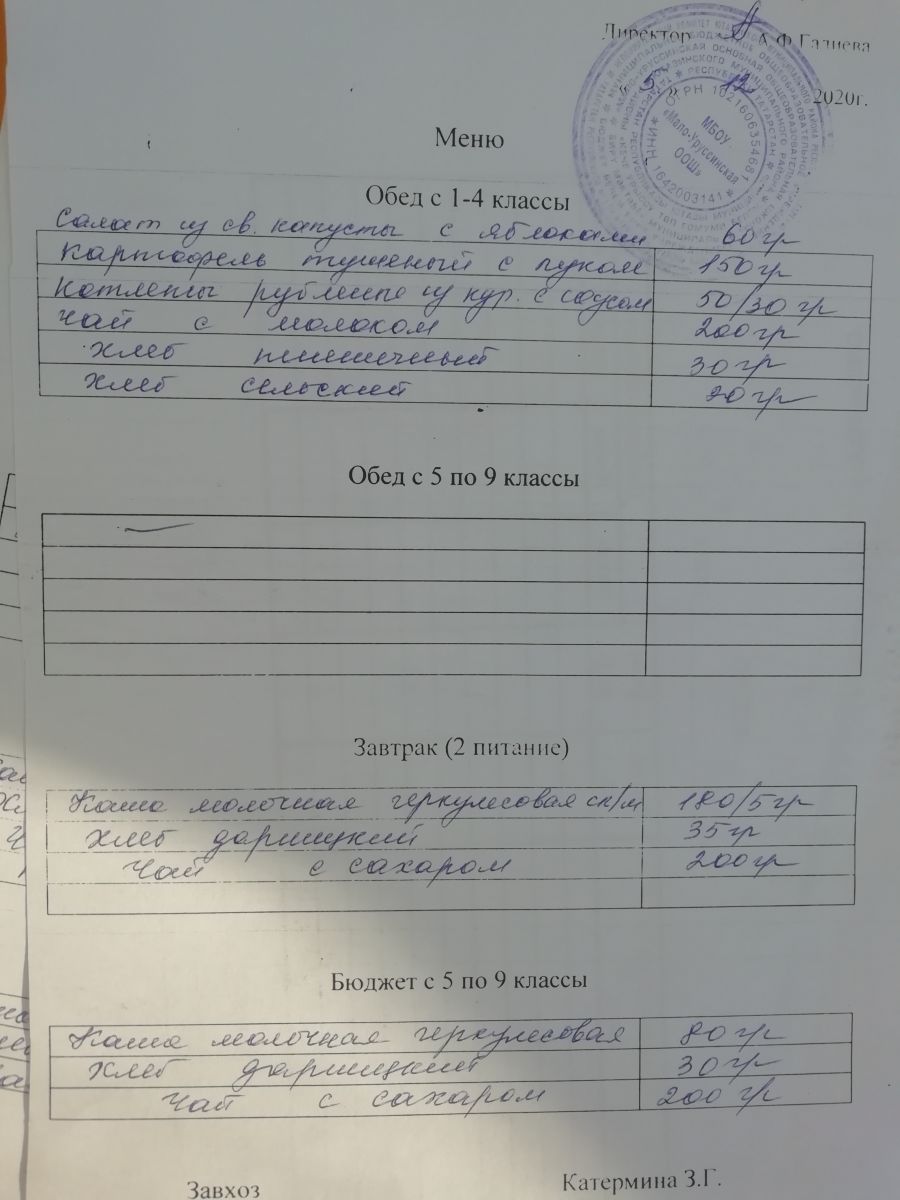 Директор А.Ф.Галиева
"5" 12 2020г.
МБОУ
«Мало-Уруссинская
ООШ»
ОГРН 1021606354681
ИНН 1642003141
Меню
Обед с 1-4 классы
Салат из св. капусты с яблоками 60 гр
Картофель тушеный с луком 150 гр
Котлеты рубленые из кур. с соусом 50/30 гр
Чай с молоком 200 гр
Хлеб пшеничный 30 гр
Хлеб сельский 20 гр
Обед с 5 по 9 классы
Завтрак (2 питание)
Каша молочная геркулесовая сл/м 180/5 гр
Хлеб дарницкий 35 гр
Чай с сахаром 200 гр
Бюджет с 5 по 9 классы
Каша молочная геркулесовая 80 гр
Хлеб дарницкий 30 гр
Чай с сахаром 200 гр
Завхоз Катермина З.Г.